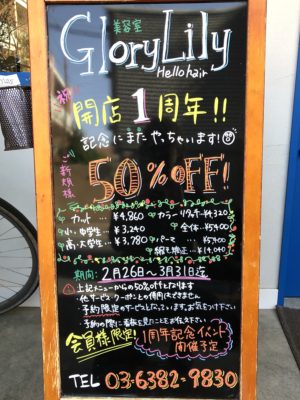 美容室
GloryLily
Hello hair
祝
開店1周年!!
記念にまたやっちゃいます!
ご新規様
50%OFF!
カット … ¥4,860
小・中学生 … ¥3,240
高・大学生 … ¥3,780
カラー リタッチ ¥4,320
全体 … ¥5,400
パーマ … ¥5,400
縮毛矯正 … ¥14,040
期間: 2月26日〜3月31日迄
上記メニューからの50%offとなります
他サービス・クーポンとの併用はできません
予約限定のサービスとなっています。お気をつけ下さい
予約の際に看板を見たことをお伝え下さい
会員様限定!
1周年記念イベント
開催予定
TEL 03-6382-9830